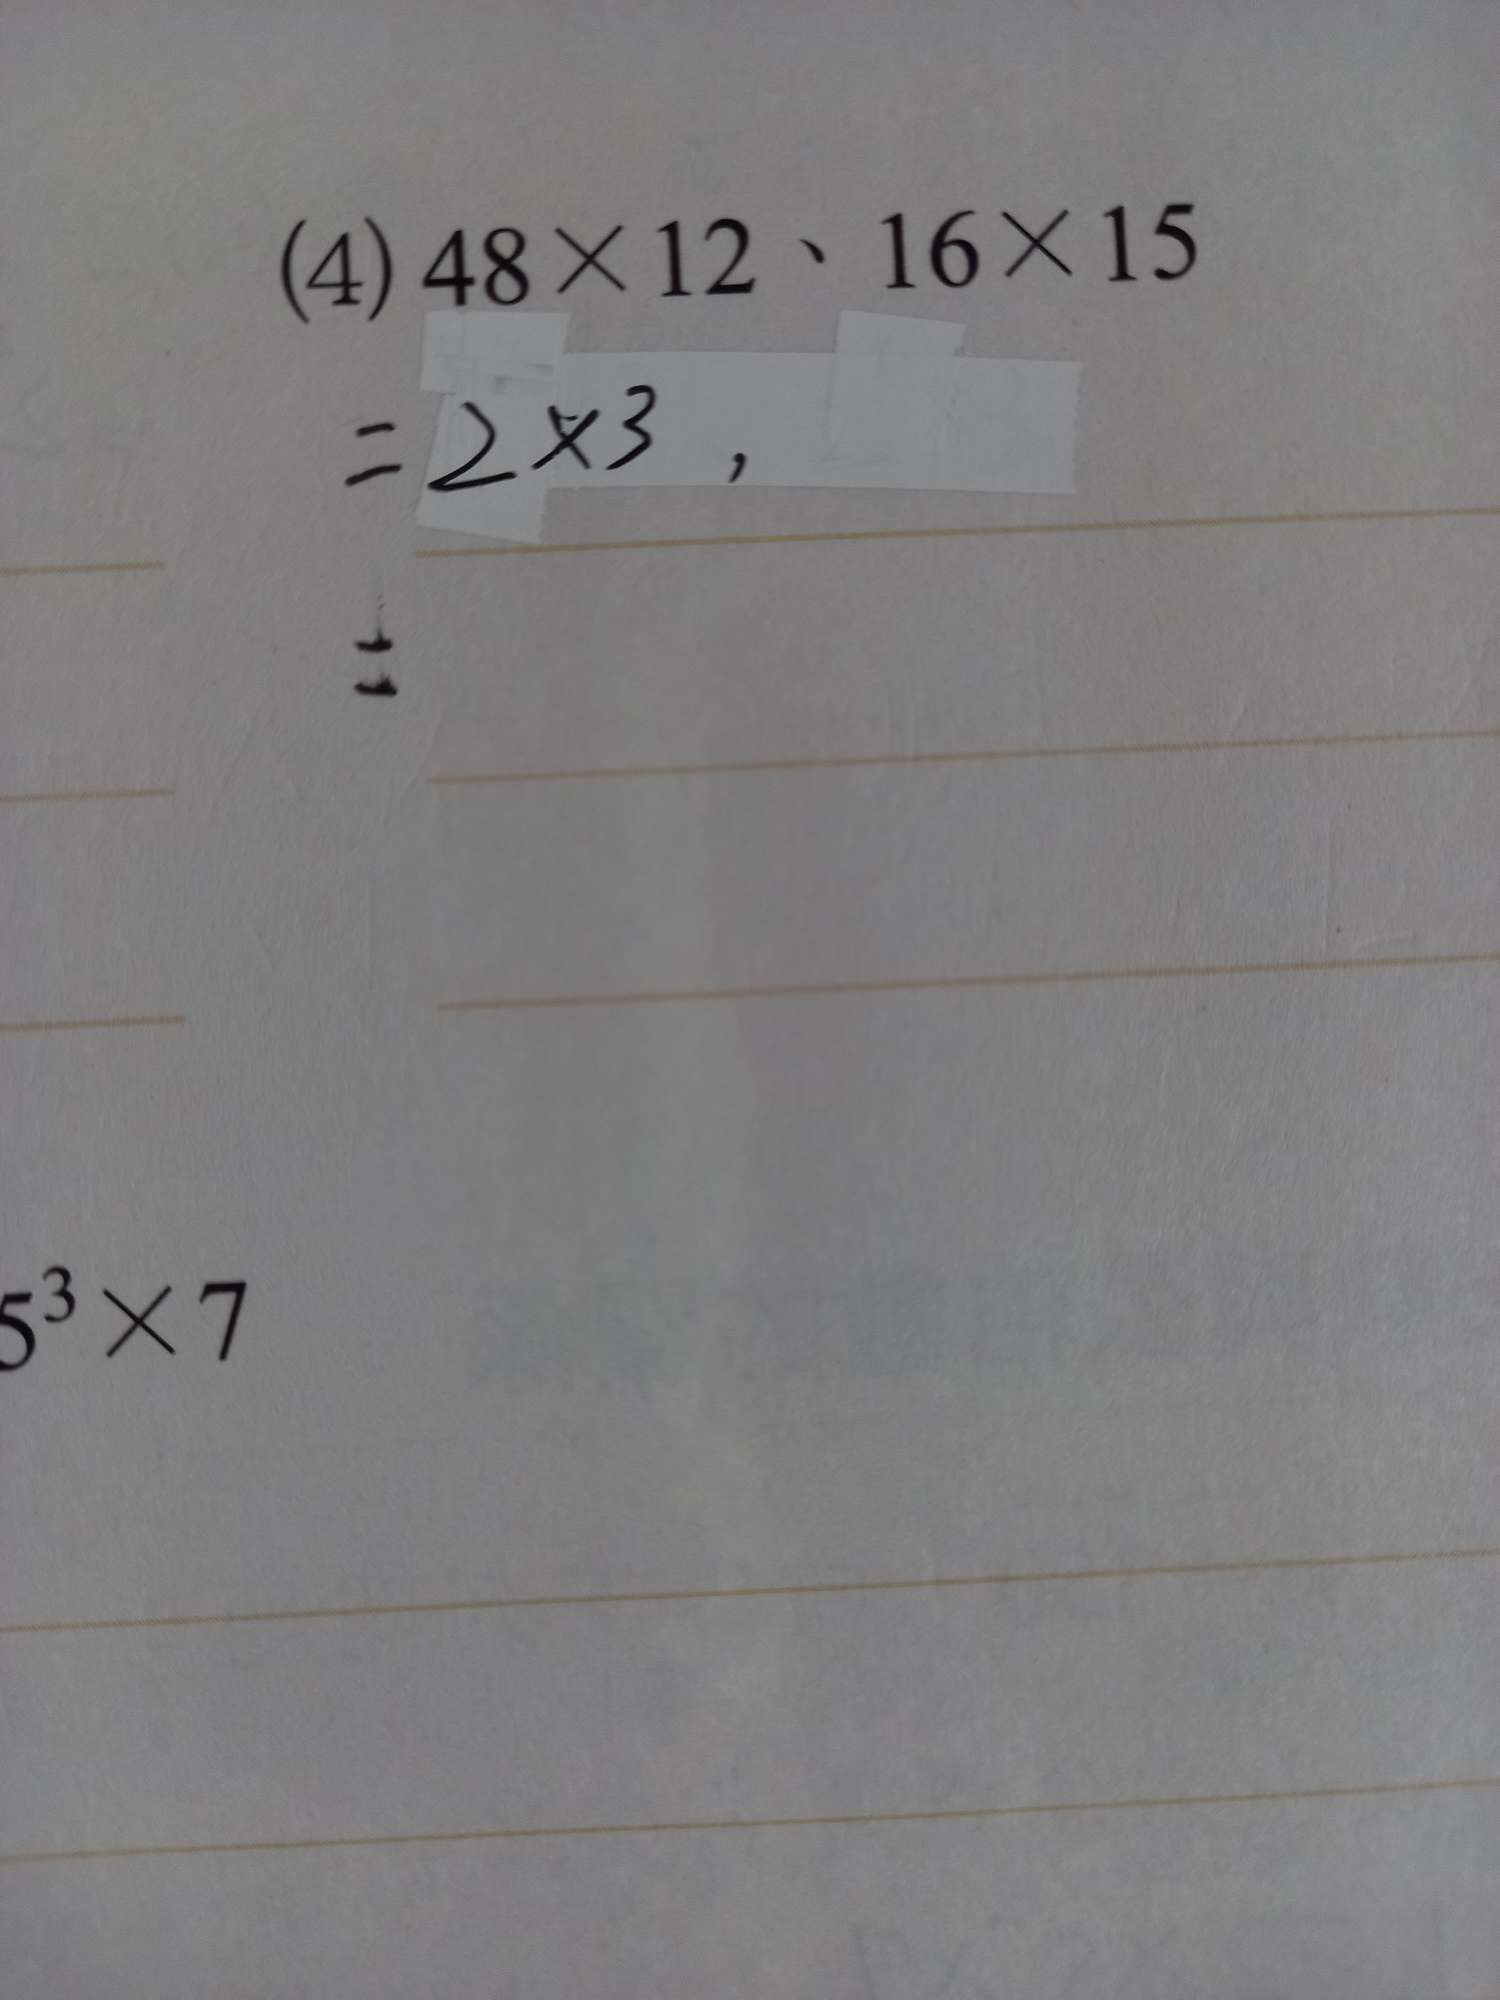 (4) 48×12、16×15
= 2×3 ,
=
5³×7